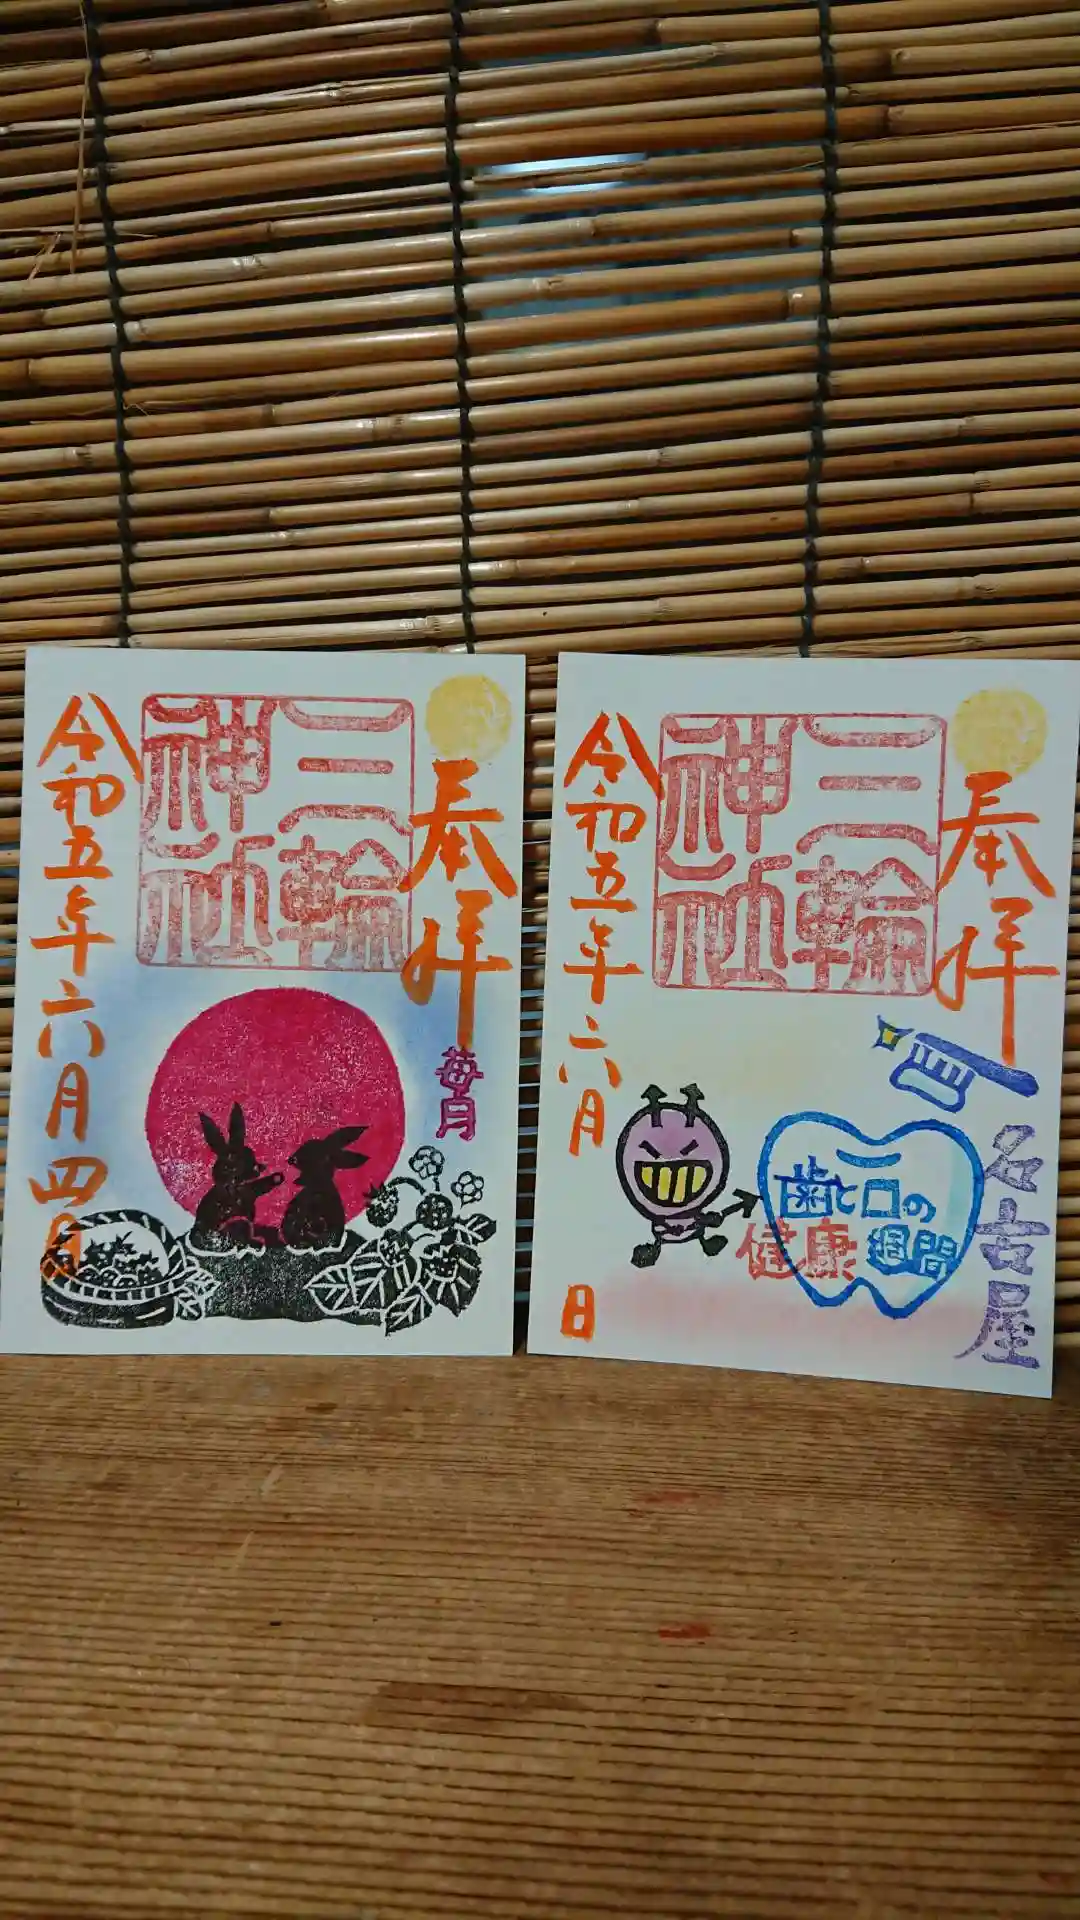 奉拝
三輪
神社
苺月
令和五年六月四日
奉拝
三輪
神社
名古屋
歯と口の
健康週間
令和五年六月 日